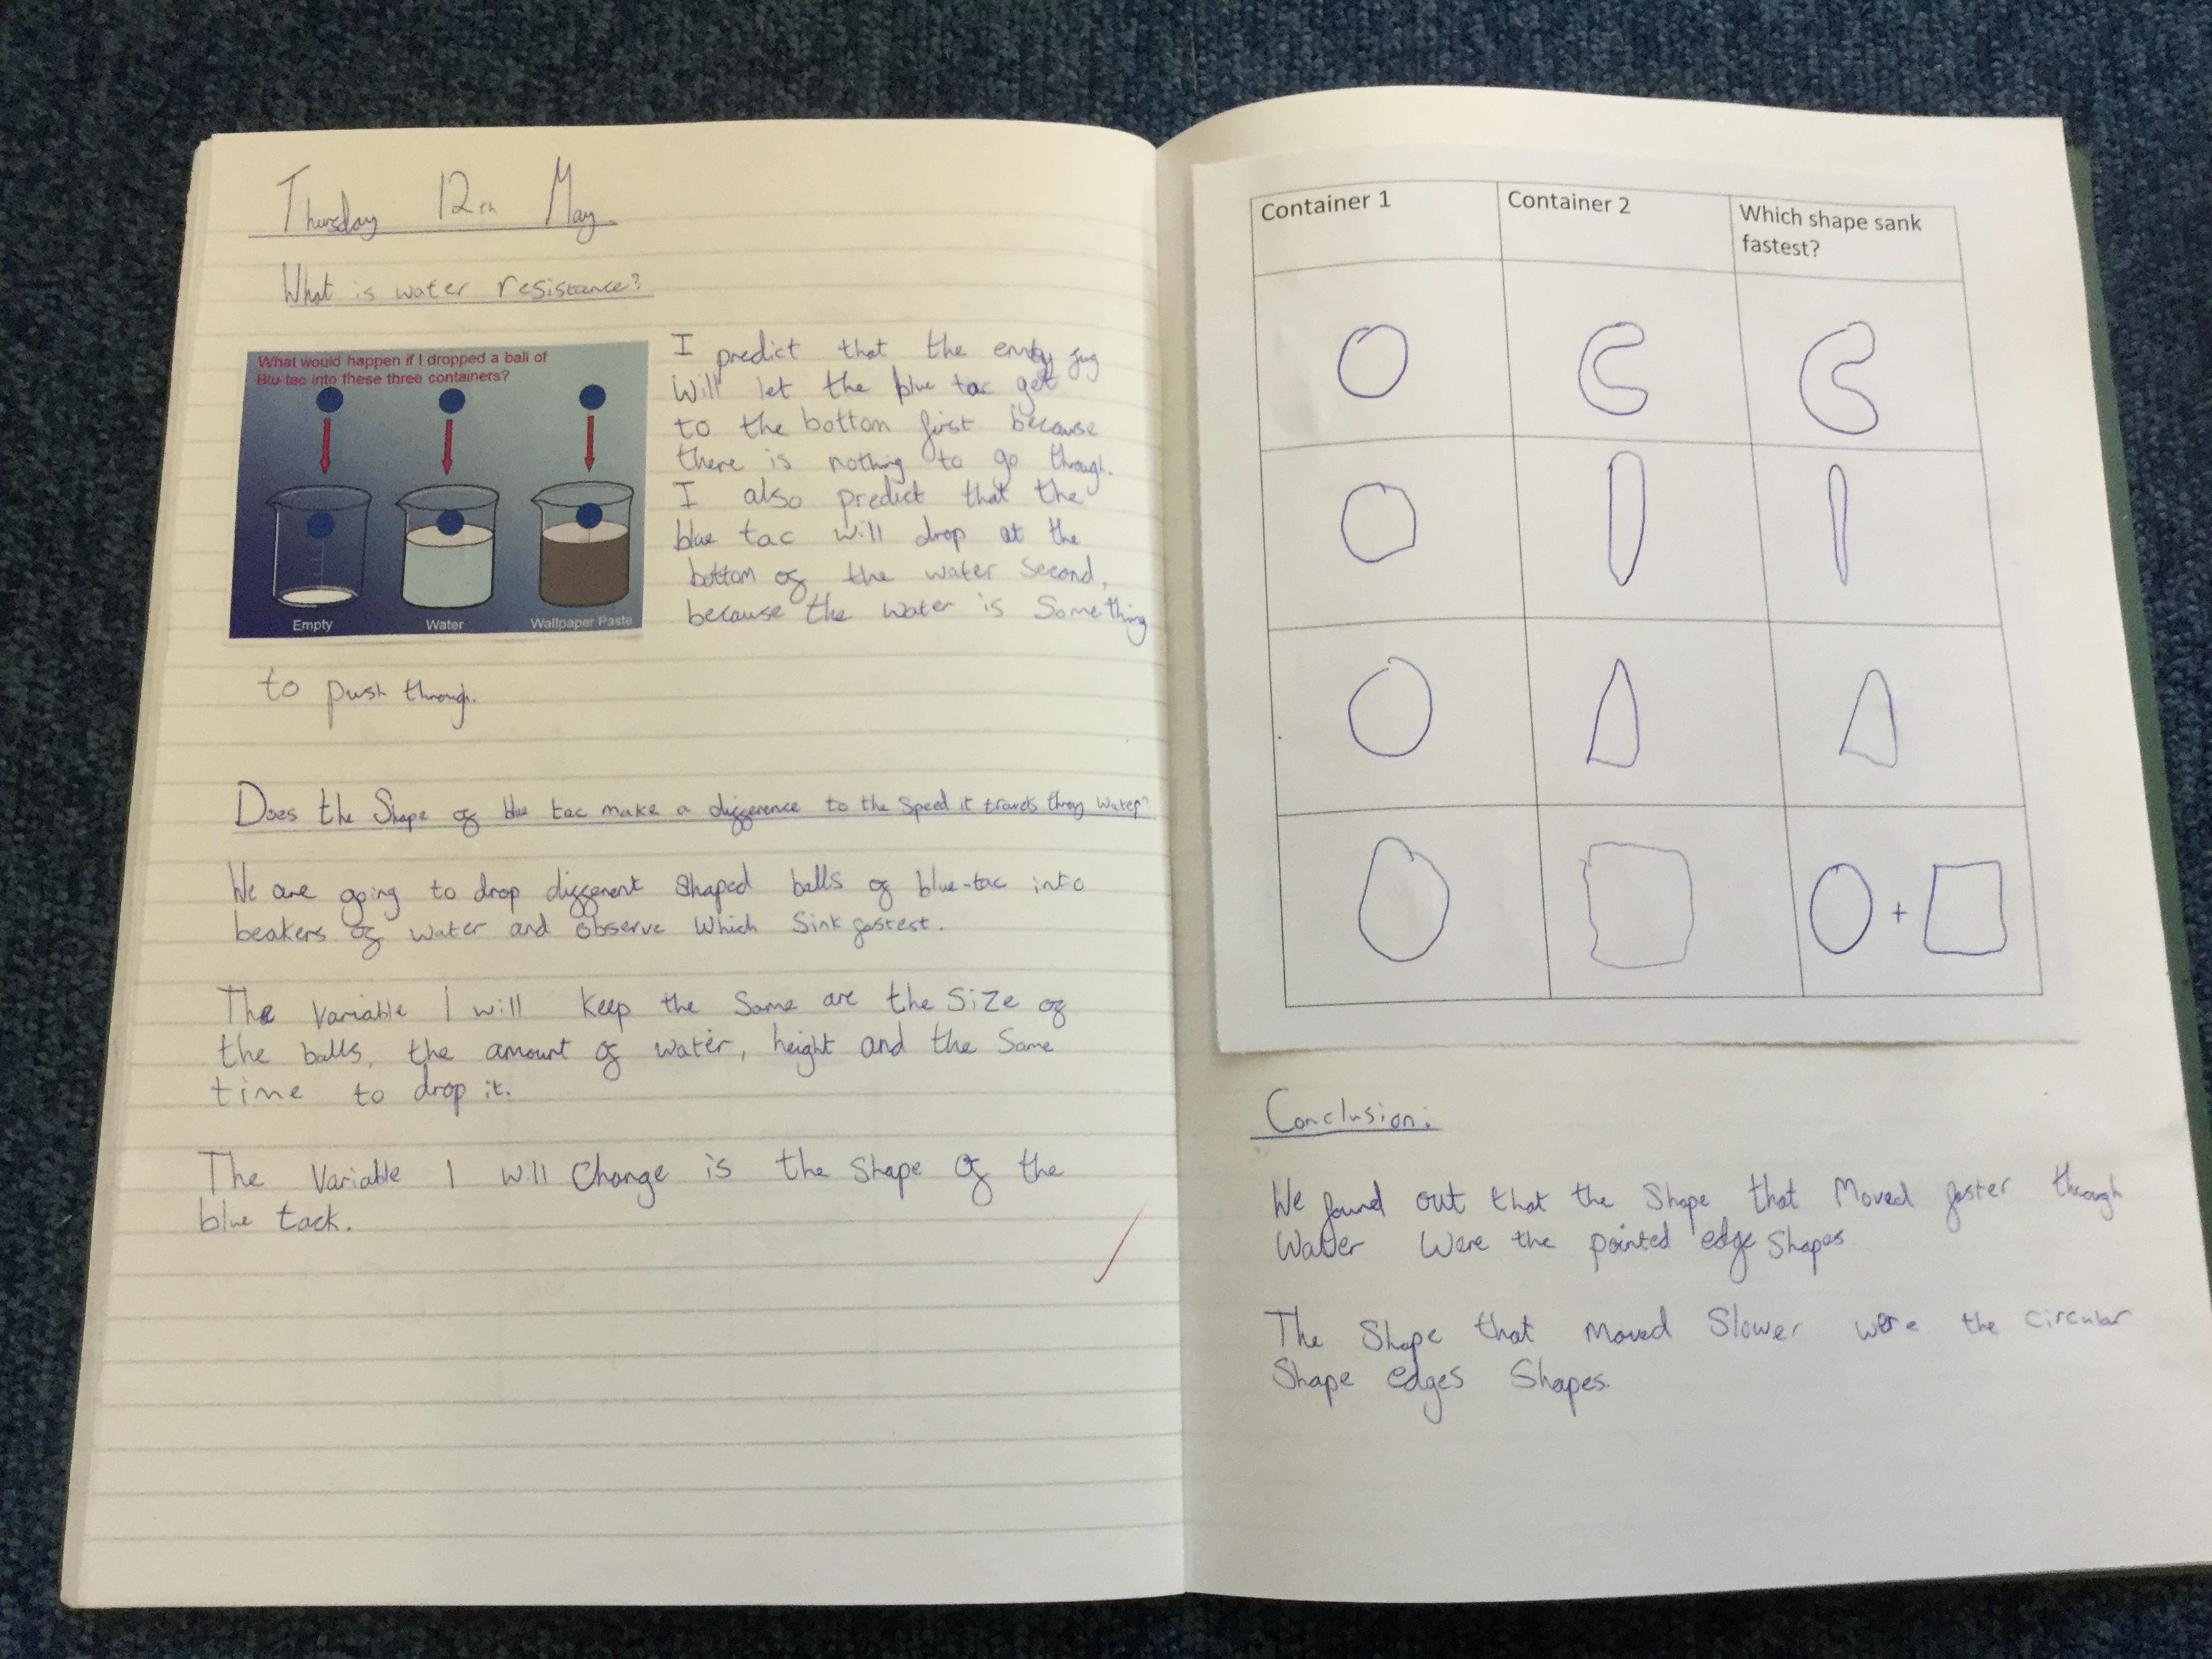 Thursday 12th May.
What is water resistance?
What would happen if I dropped a ball of
Blu-tac into these three containers?
Empty
Water
Wallpaper Paste
I predict that the emty jug
Will let the blue tac get
to the bottom first because
there is nothing to go through.
I also predict that the
blue tac will drop at the
bottom of the water second,
because the water is Something
to push through.
Does the Shape of blue tac make a difference to the Speed it travels throug water?
We are going to drop different shaped balls of blue-tac into
beakers of water and observe which Sink fastest.
The Variable I will keep the same are the size of
the balls, the amount of water, height and the same
time to drop it.
The Variable I will Change is the shape of the
blue tack.
Container 1
Container 2
Which shape sank
fastest?
+
Conclusion:
We found out that the shape that Moved faster through
Water Were the pointed edge shapes
The Shape that moved Slower were the circular
Shape edges Shapes.